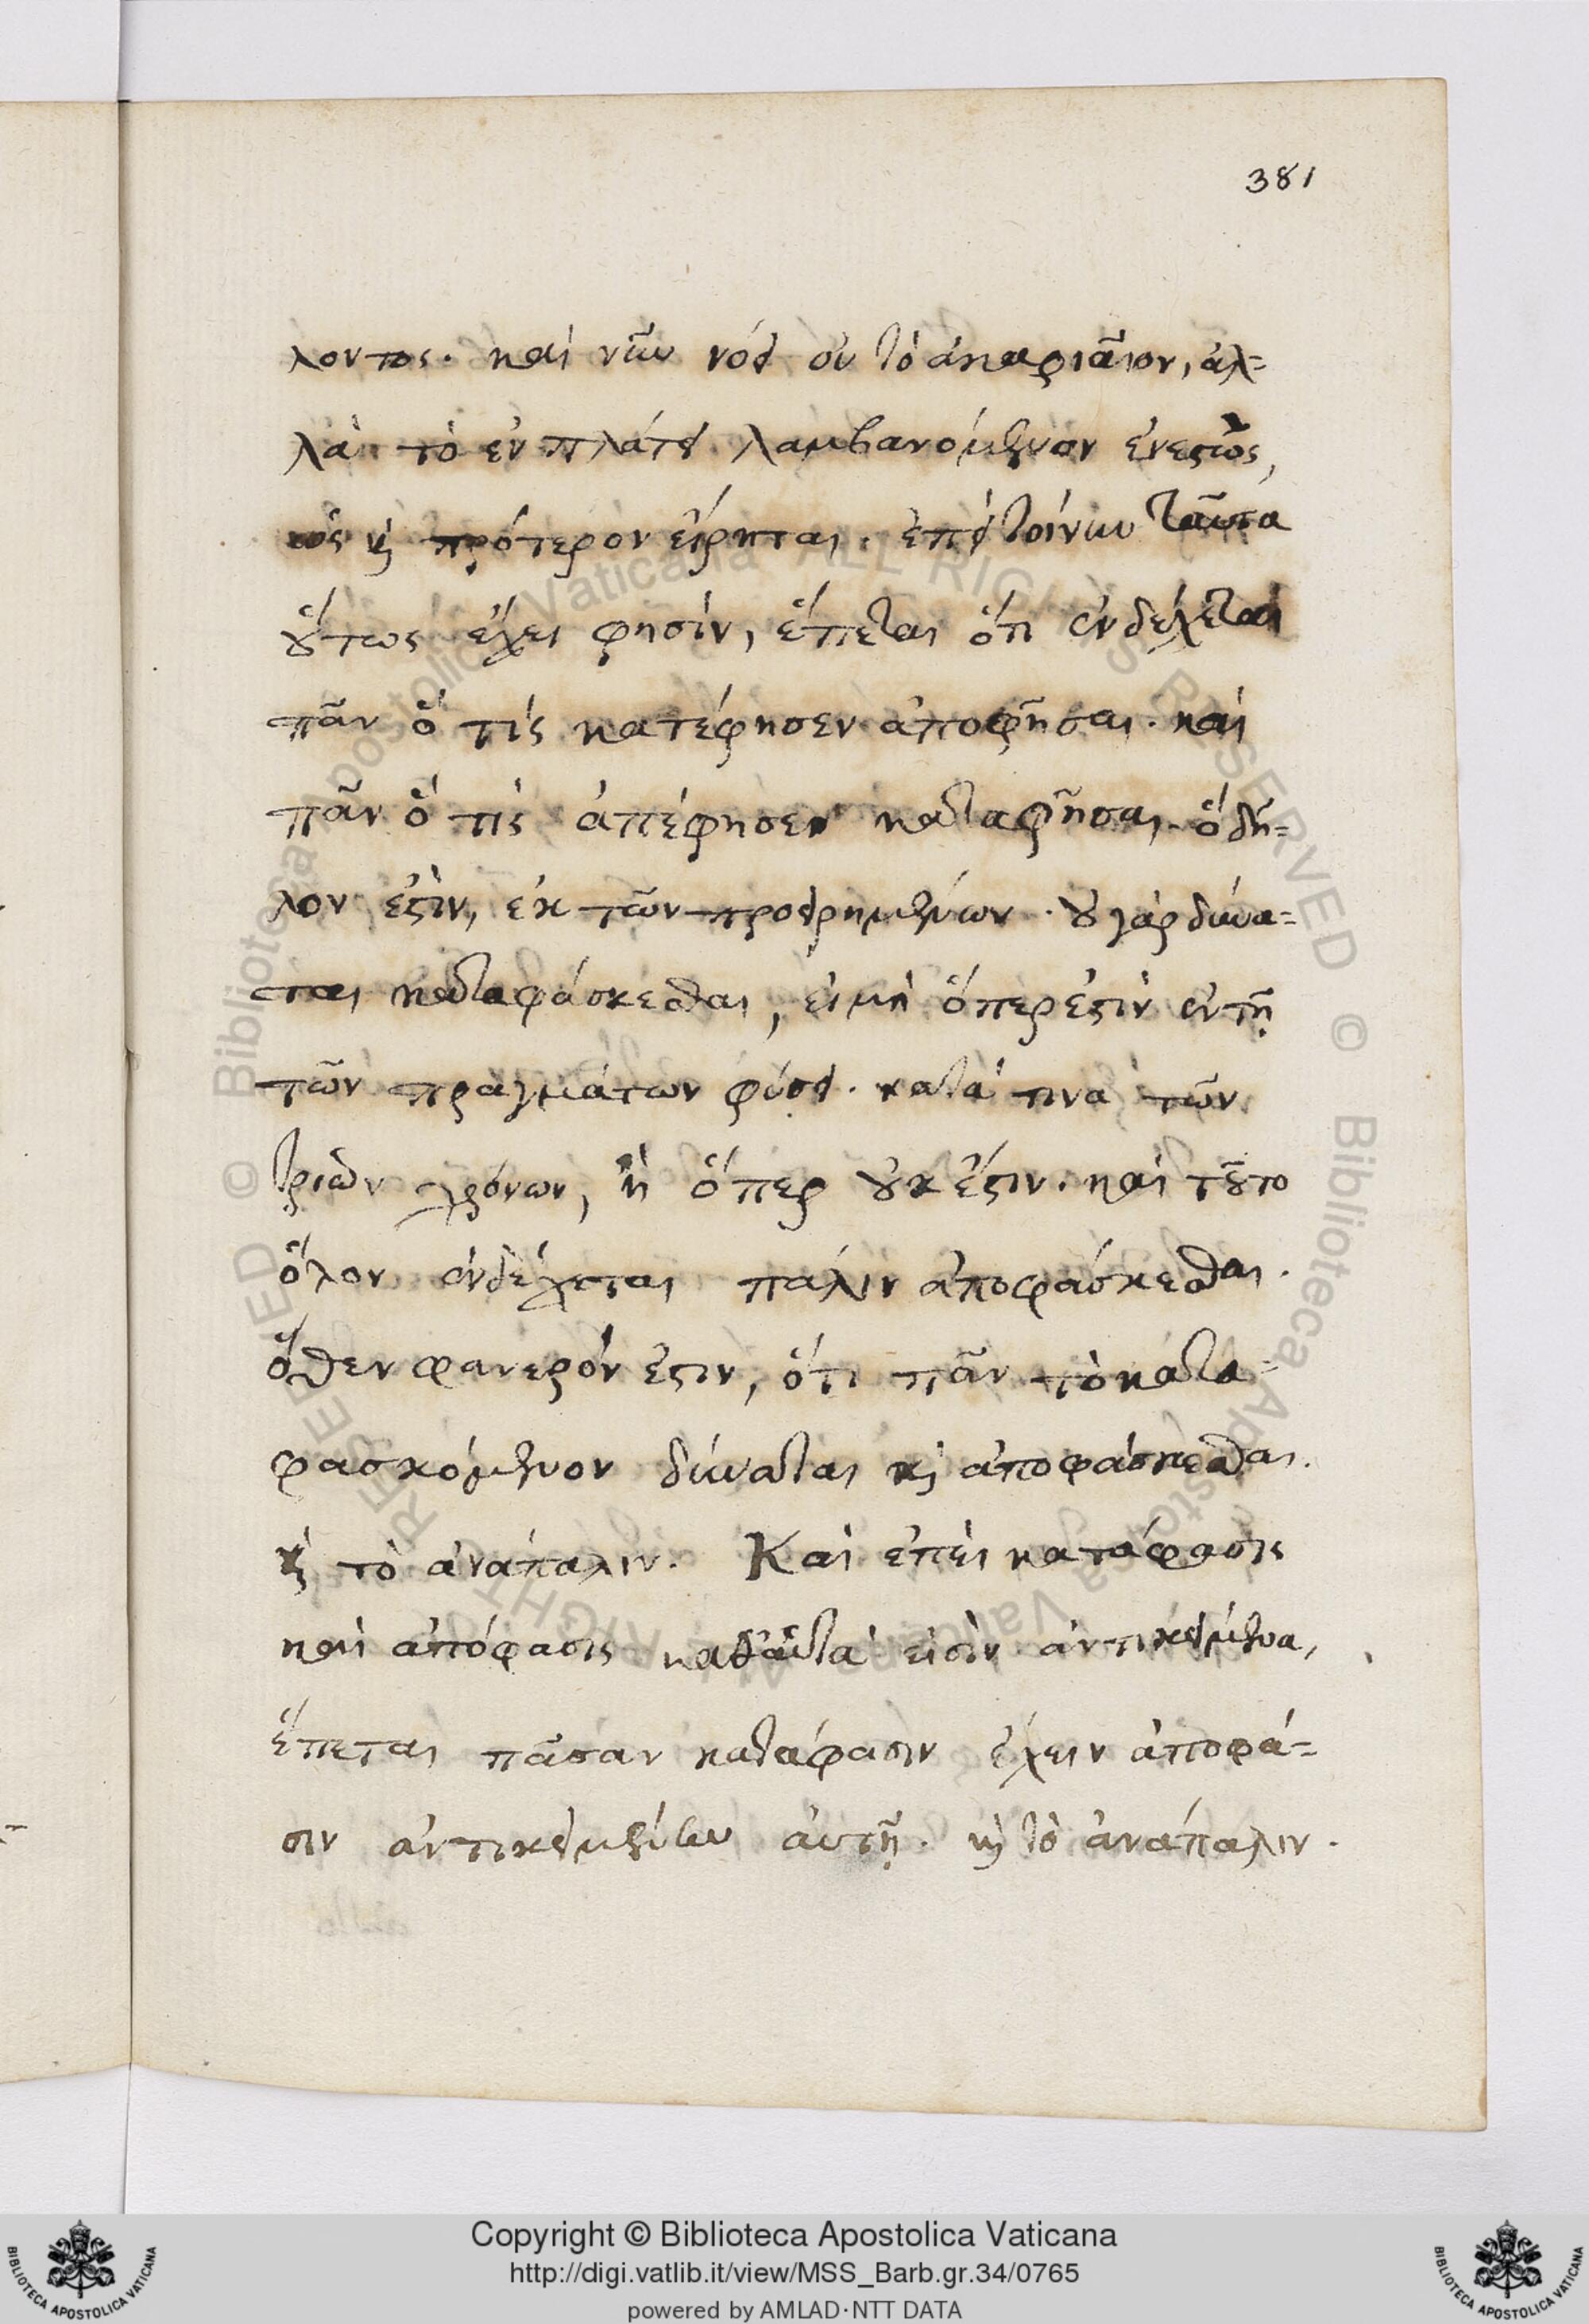 381
λοντος. καὶ νῦν νόει οὐ τὸ ἀκαριαῖον, ἀλ=
λὰ τὸ ἐν πλάτει λαμβανόμενον ἐνεστώς,
ὡς καὶ πρότερον εἴρηται. ἐπεὶ τοίνυν ταῦτα
οὕτως ἔχει φησίν, ἕπεται ὅτι ἐνδέχεται
πᾶν ὅ τις κατέφησεν ἀποφῆσαι. καὶ
πᾶν ὅ τις ἀπέφησεν καταφῆσαι. ὃ δῆ=
λον ἐστὶν, ἐκ τῶν προειρημένων. οὐ γὰρ δύνα=
ται καταφάσκεσθαι, εἰ μὴ ὅπερ ἐστὶν ἐν τῇ
τῶν πραγμάτων φύσει. κατά τινα τῶν
τριῶν χρόνων, ἢ ὅπερ οὐκ ἔστιν. καὶ τοῦτο
ὅλον ἐνδέχεται πάλιν ἀποφάσκεσθαι.
ὅθεν φανερόν ἐστιν, ὅτι πᾶν τὸ κατα=
φασκόμενον δύναται καὶ ἀποφάσκεσθαι.
καὶ τὸ ἀνάπαλιν. Καὶ ἐπεὶ κατάφασις
καὶ ἀπόφασις καθ' αὑτά εἰσιν ἀντικείμενα,
ἕπεται πᾶσαν κατάφασιν ἔχειν ἀποφά=
σιν ἀντικειμένην αὐτῇ. καὶ τὸ ἀνάπαλιν.
Copyright © Biblioteca Apostolica Vaticana
http://digi.vatlib.it/view/MSS_Barb.gr.34/0765
powered by AMLAD·NTT DATA